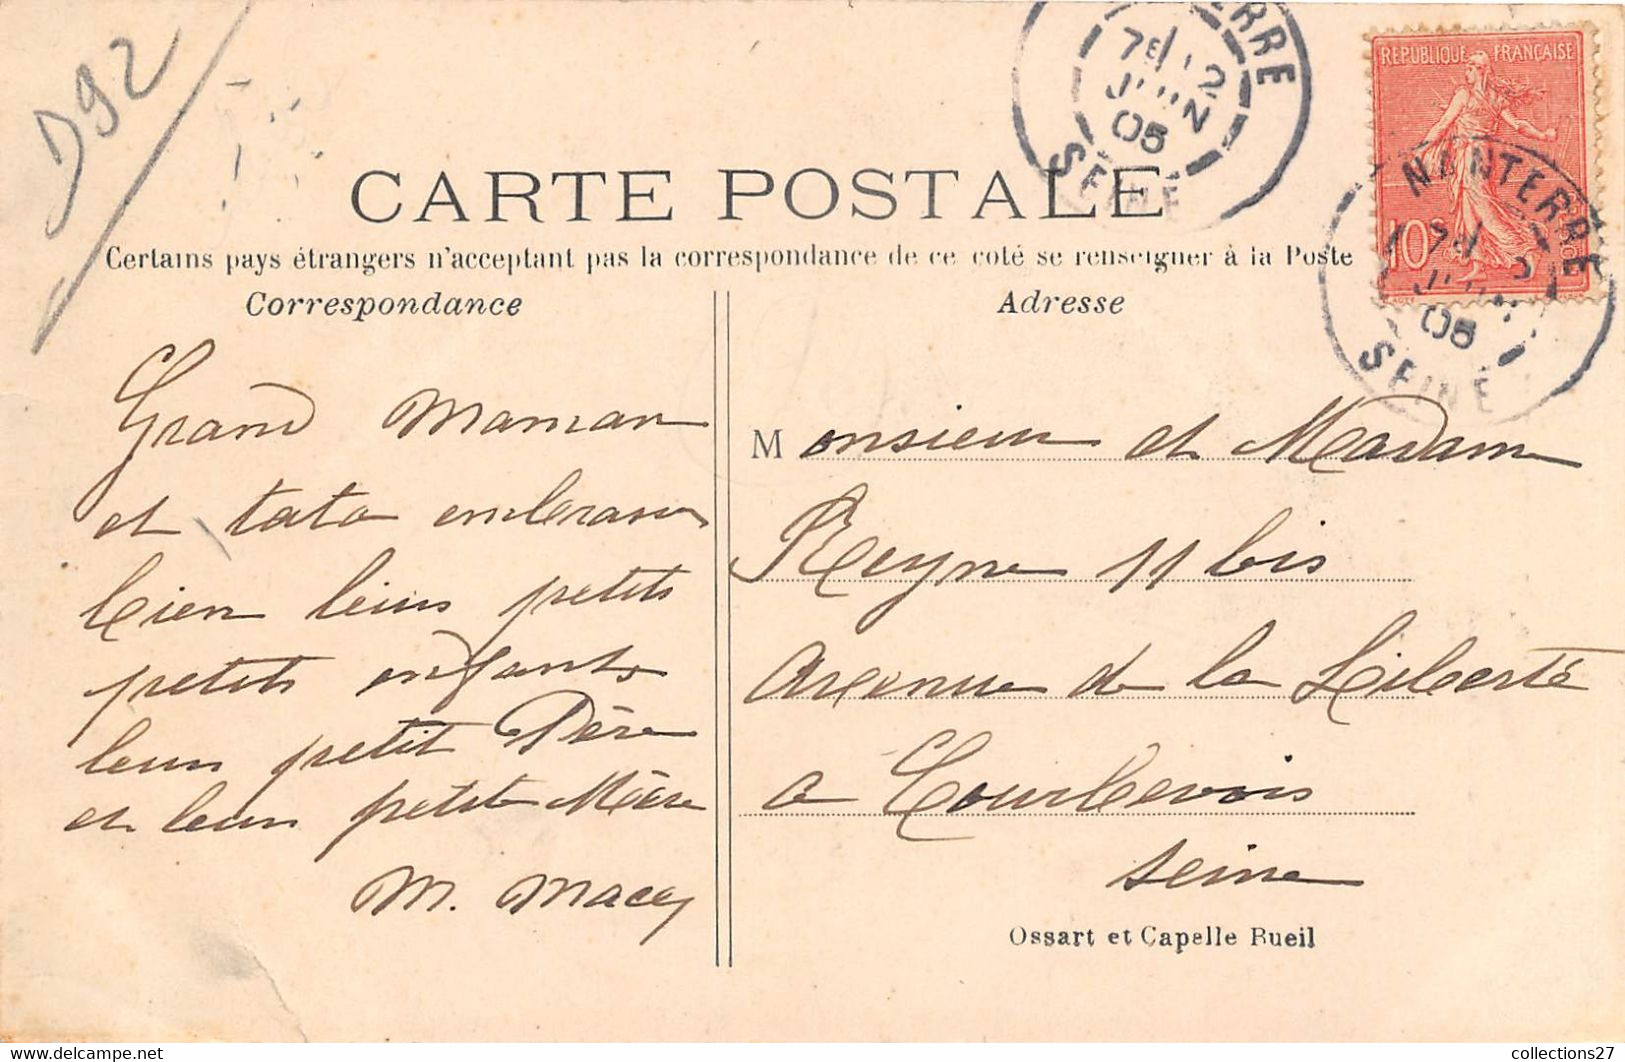 D92
CARTE POSTALE
Certains pays étrangers n'acceptant pas la correspondance de ce coté se renseigner à la Poste
Correspondance
Grand Maman
et tata embrasse
bien leurs petits
petits enfants
leur petit Père
et leur petite Mère
M. Macey
Adresse
Monsieur et Madame
Reyne 11 bis
Avenue de la Liberté
a Courbevoie
Seine
Ossart et Capelle Rueil
REPUBLIQUE FRANÇAISE
10c
ERRE
7E 12
JUIN
05
SEINE
NANTERRE
7E 2
JUIN
05
SEINE
collections27